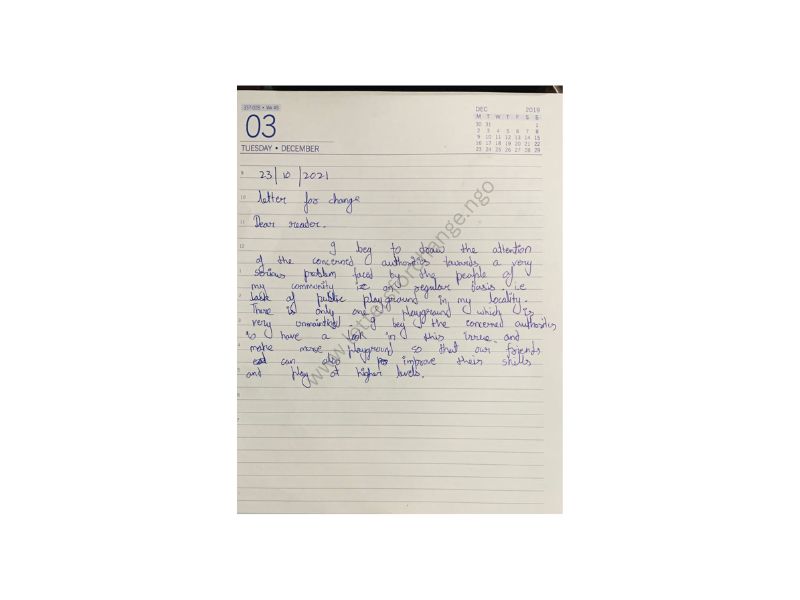 337-028 • Wk 49
03
TUESDAY • DECEMBER
DEC 2019
M T W T F S S
30 31 1
2 3 4 5 6 7 8
9 10 11 12 13 14 15
16 17 18 19 20 21 22
23 24 25 26 27 28 29
9 23/10/2021
10 letter for change
11 Dear reader,
12 I beg to draw the attention
of the concerned authorities towards a very
1 serious problem faced by the people of
my community on regular basis i.e
2 lack of public playground in my locality.
There is only one playground which is
3 very unmaintied. I beg the concerned authorities
to have a look in this issue and
4 make more playground so that our friends
can also improve their skills
and play at higher levels.
5
6
7
www.lettersforchange.ngo